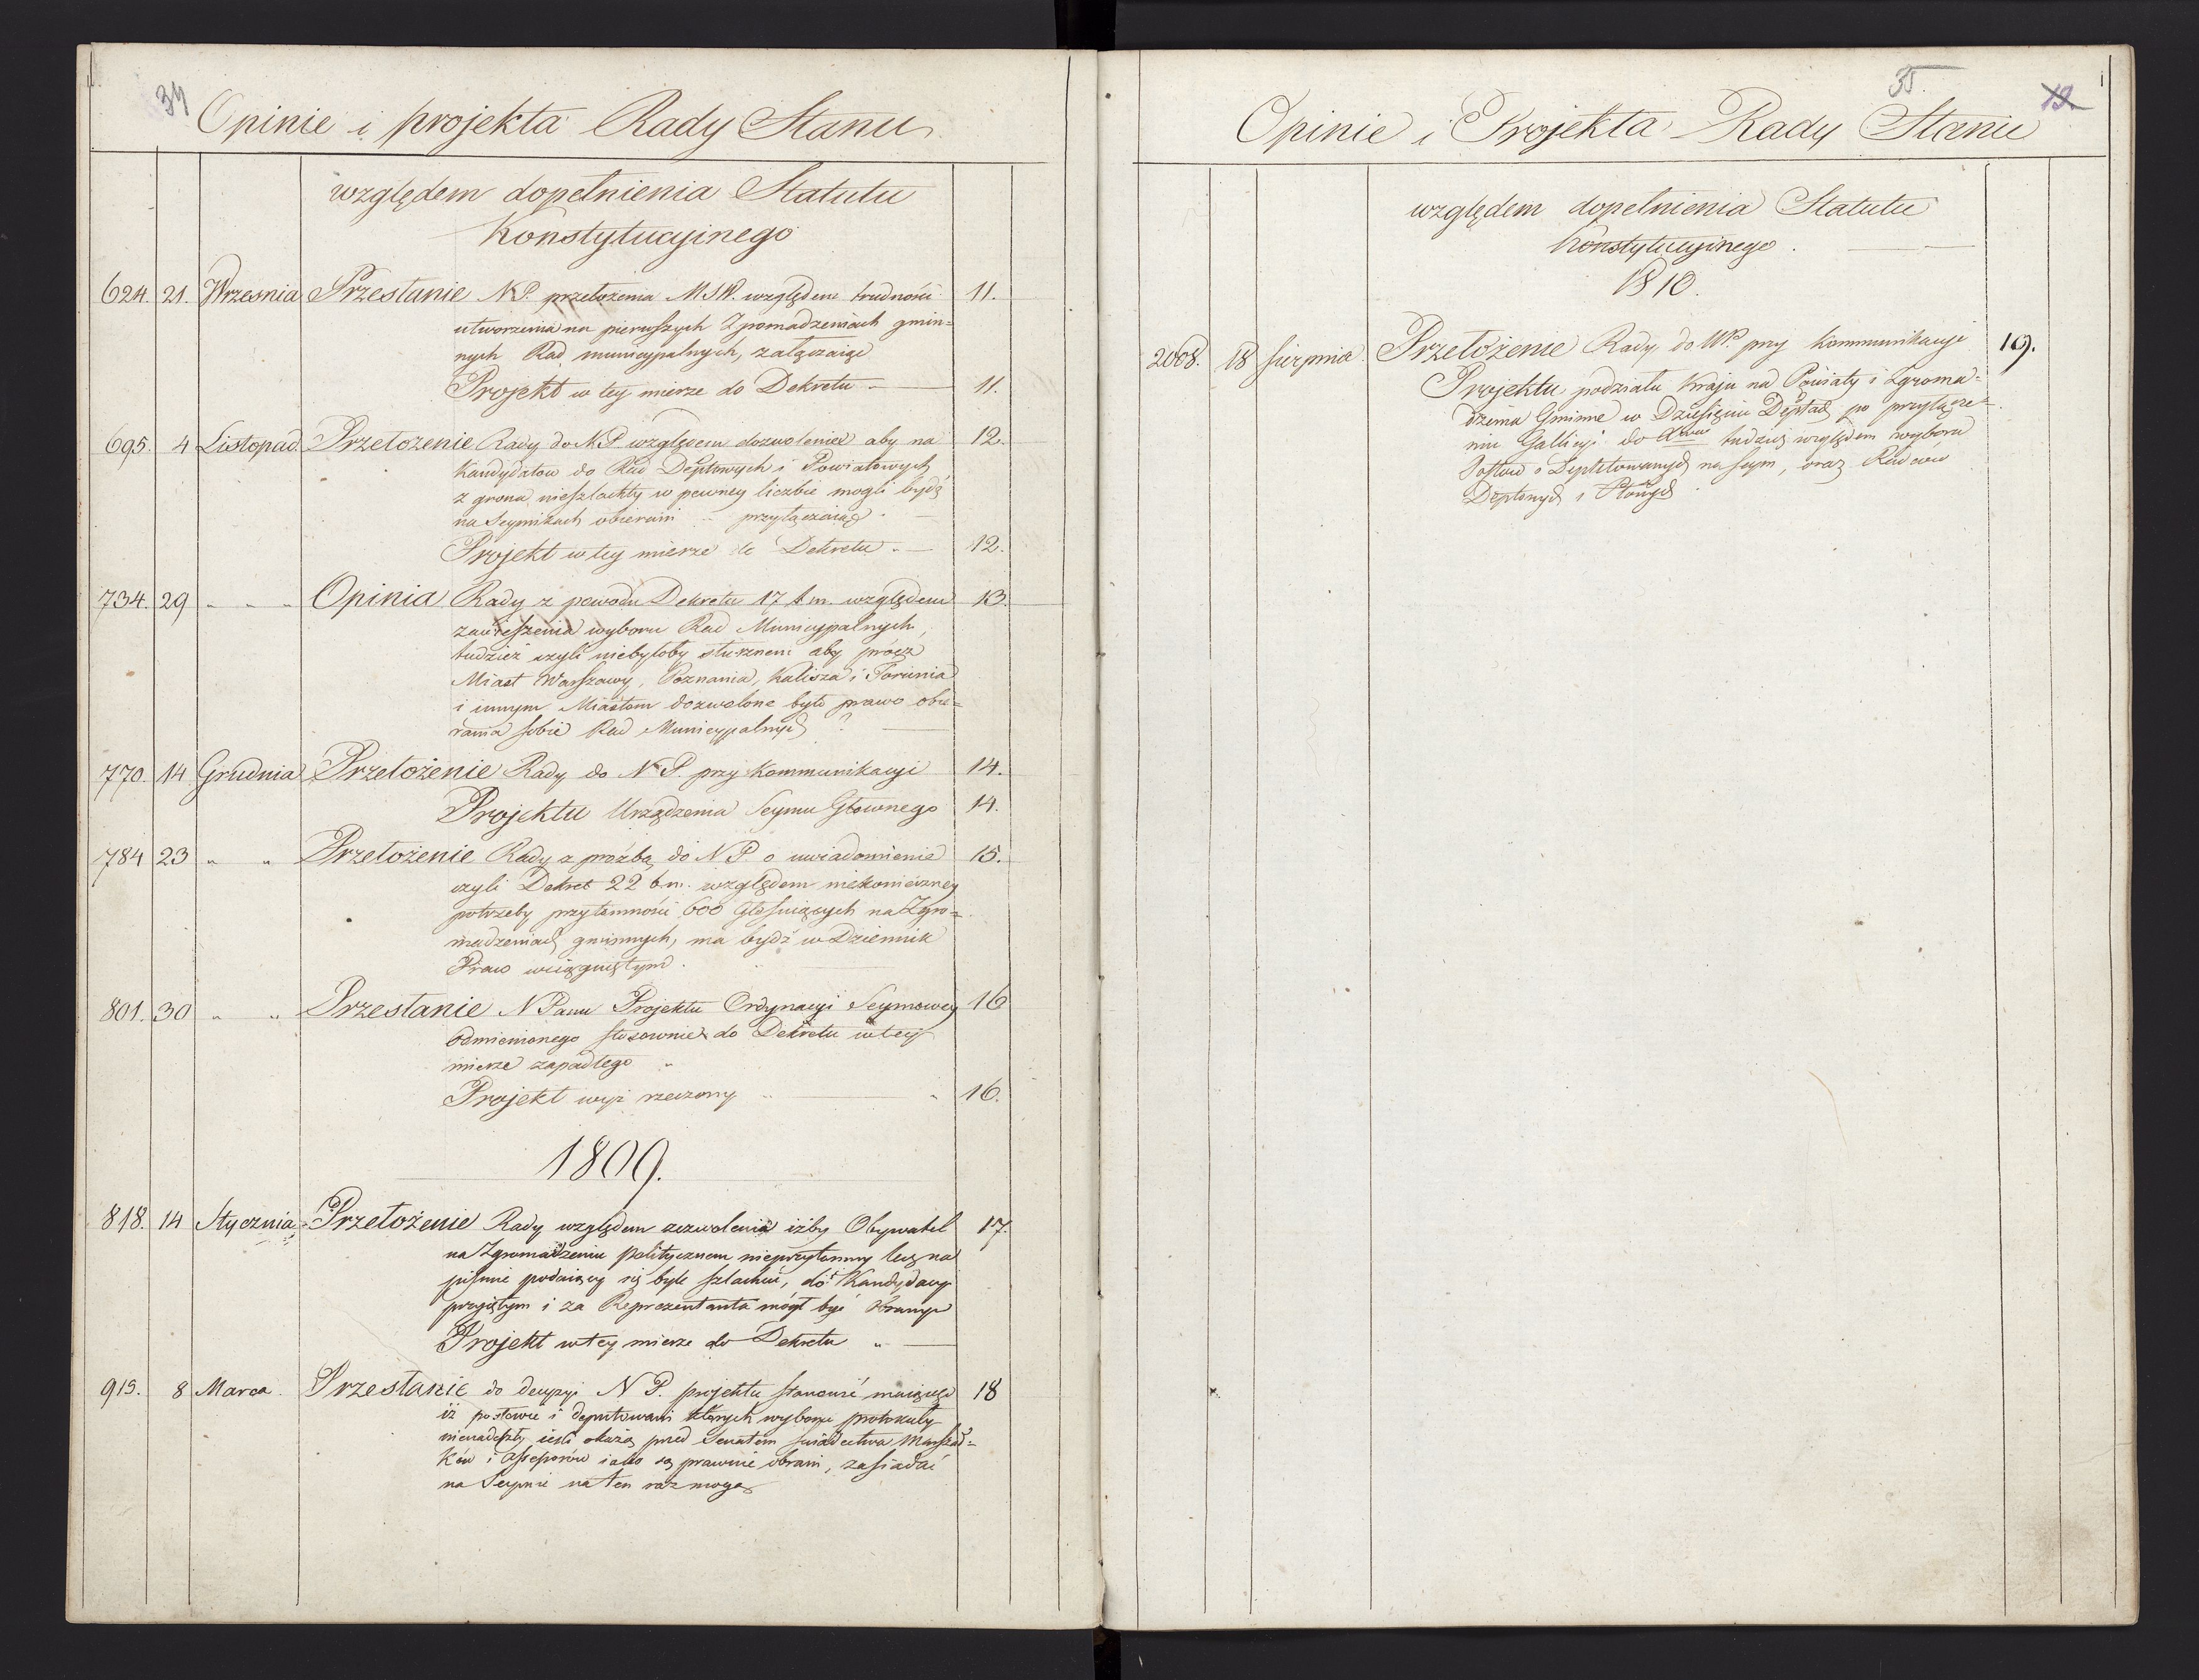 34
Opinie i projekta Rady Stanu
względem dopełnienia Statutu
Konstytucyjnego
624. 21. Wrzesnia Przesłanie N.P. przełożenia M.S.W. względem trudności 11.
utworzenia na pierwszych Zgromadzeniach gmin=
nych Rad municypalnych, załączaiąc
Projekt w tey mierze do Dekretu 11.
695. 4 Listopad. Przełozenie Rady do N.P. względem dozwolenia aby na 12.
Kandydatow do Rad Deptowych i Powiatowych
z grona nieszlachty w pewney liczbie mogli bydź
na Seymikach obierani przyłączaiąc
Projekt w tey mierze do Dekretu 12.
734. 29 " " " Opinia Rady z powodu Dekretu 17 b.m. względem 13.
zawieszenia wyboru Rad Municypalnych,
tudzież czyli niebyłoby słusznem aby prócz
Miast Warszawy, Poznania, Kalisza i Torunia
i innym Miastom dozwolone było prawo obie=
rania sobie Rad Municypalnych ?
770. 14 Grudnia Przełożenie Rady do N.P. przy Kommunikacyi 14.
Projektu Urządzenia Seymu Głownego 14.
784 23 " " Przełożenie Rady z proźbą do N.P. o uwiadomienie 15.
czyli Dekret 22 b.m. względem niekonieczney
potrzeby przytomności 600 Głosuiących na Zgro=
madzeniach gminnych, ma bydź w Dziennik
Praw wciągniętym.
801. 30 " " Przesłanie N Panu Projektu Ordynacyi Seymowey 16
odmienionego stosownie do Dekretu w tey
mierze zapadłego
Projekt wyż rzeczony 16.
1809.
818. 14 Stycznia Przełożenie Rady względem zezwolenia iżby Obywatel 17.
na Zgromadzeniu politycznem nieprzytomny lecz na
piśmie podaiący się byle szlachcic, do Kandydacyi
przyiętym i za Reprezentanta mógł być obrany
Projekt w tey mierze do Dekretu "
915. 8 Marca. Przesłanie do decyzyi N.P. projektu stanowić maiącego 18
iż posłowie i deputowani których wyboru protokuły
nienadeszły ieśli okażą przed Senatem świadectwa Marszał=
ków i Assessorów iako są prawnie obrani, zasiadać
na Seymie na ten raz mogą
35.
19
Opinie i Projekta Rady Stanu
względem dopełnienia Statutu
Konstytucyjnego.
1810.
2008. 18 Sierpnia Przełożenie Rady do przy Kommunikacyi 19.
Projektu podziału Kraju na Powiaty i Zgroma=
dzenia Gminne w Dziesięciu Deptach po przyłącze=
niu Gallicyi do tudzież względem wyboru
Posłów i Deputowanych na Seym, oraz Radców
Deptowych i Ptowych